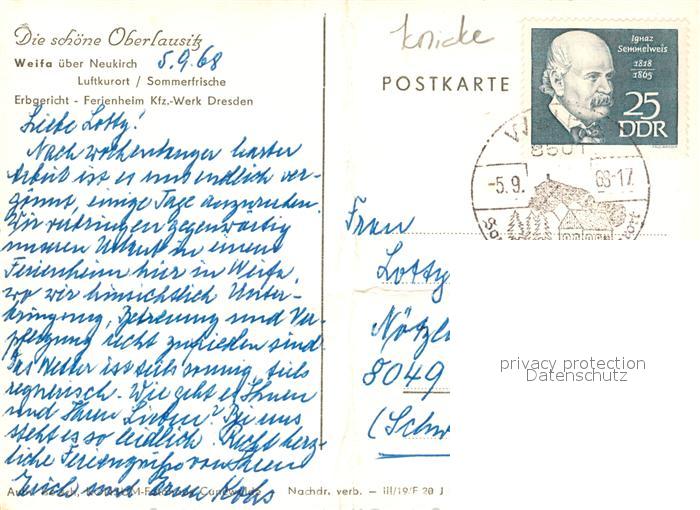 Die schöne Oberlausitz
Weifa über Neukirch 5.9.68
Luftkurort / Sommerfrische
Erbgericht - Ferienheim Kfz.-Werk Dresden
Liebe Lotty!
Nach wochenlanger harter
Arbeit ist es uns endlich ver-
gönnt, einige Tage auszuruhen.
Wir verbringen gegenwärtig
unseren Urlaub in einem
Ferienheim hier in Weifa,
wo wir hinsichtlich Unter-
bringung, Betreuung und Ver-
pflegung recht zufrieden sind.
Das Wetter ist teils sonnig, teils
regnerisch. Wie geht es Ihnen
und Ihren Lieben? Bei uns
steht es so leidlich. Recht herz-
liche Feriengrüße von Ihrem
Erich und Erna
Nachdr. verb. - III/19/F 20 J
Knicke
POSTKARTE
Ignaz
Semmelweis
1818
1865
25
DDR
8501
-5.9. 68-17
Frau
Lotty
8049
(Schw
privacy protection
Datenschutz